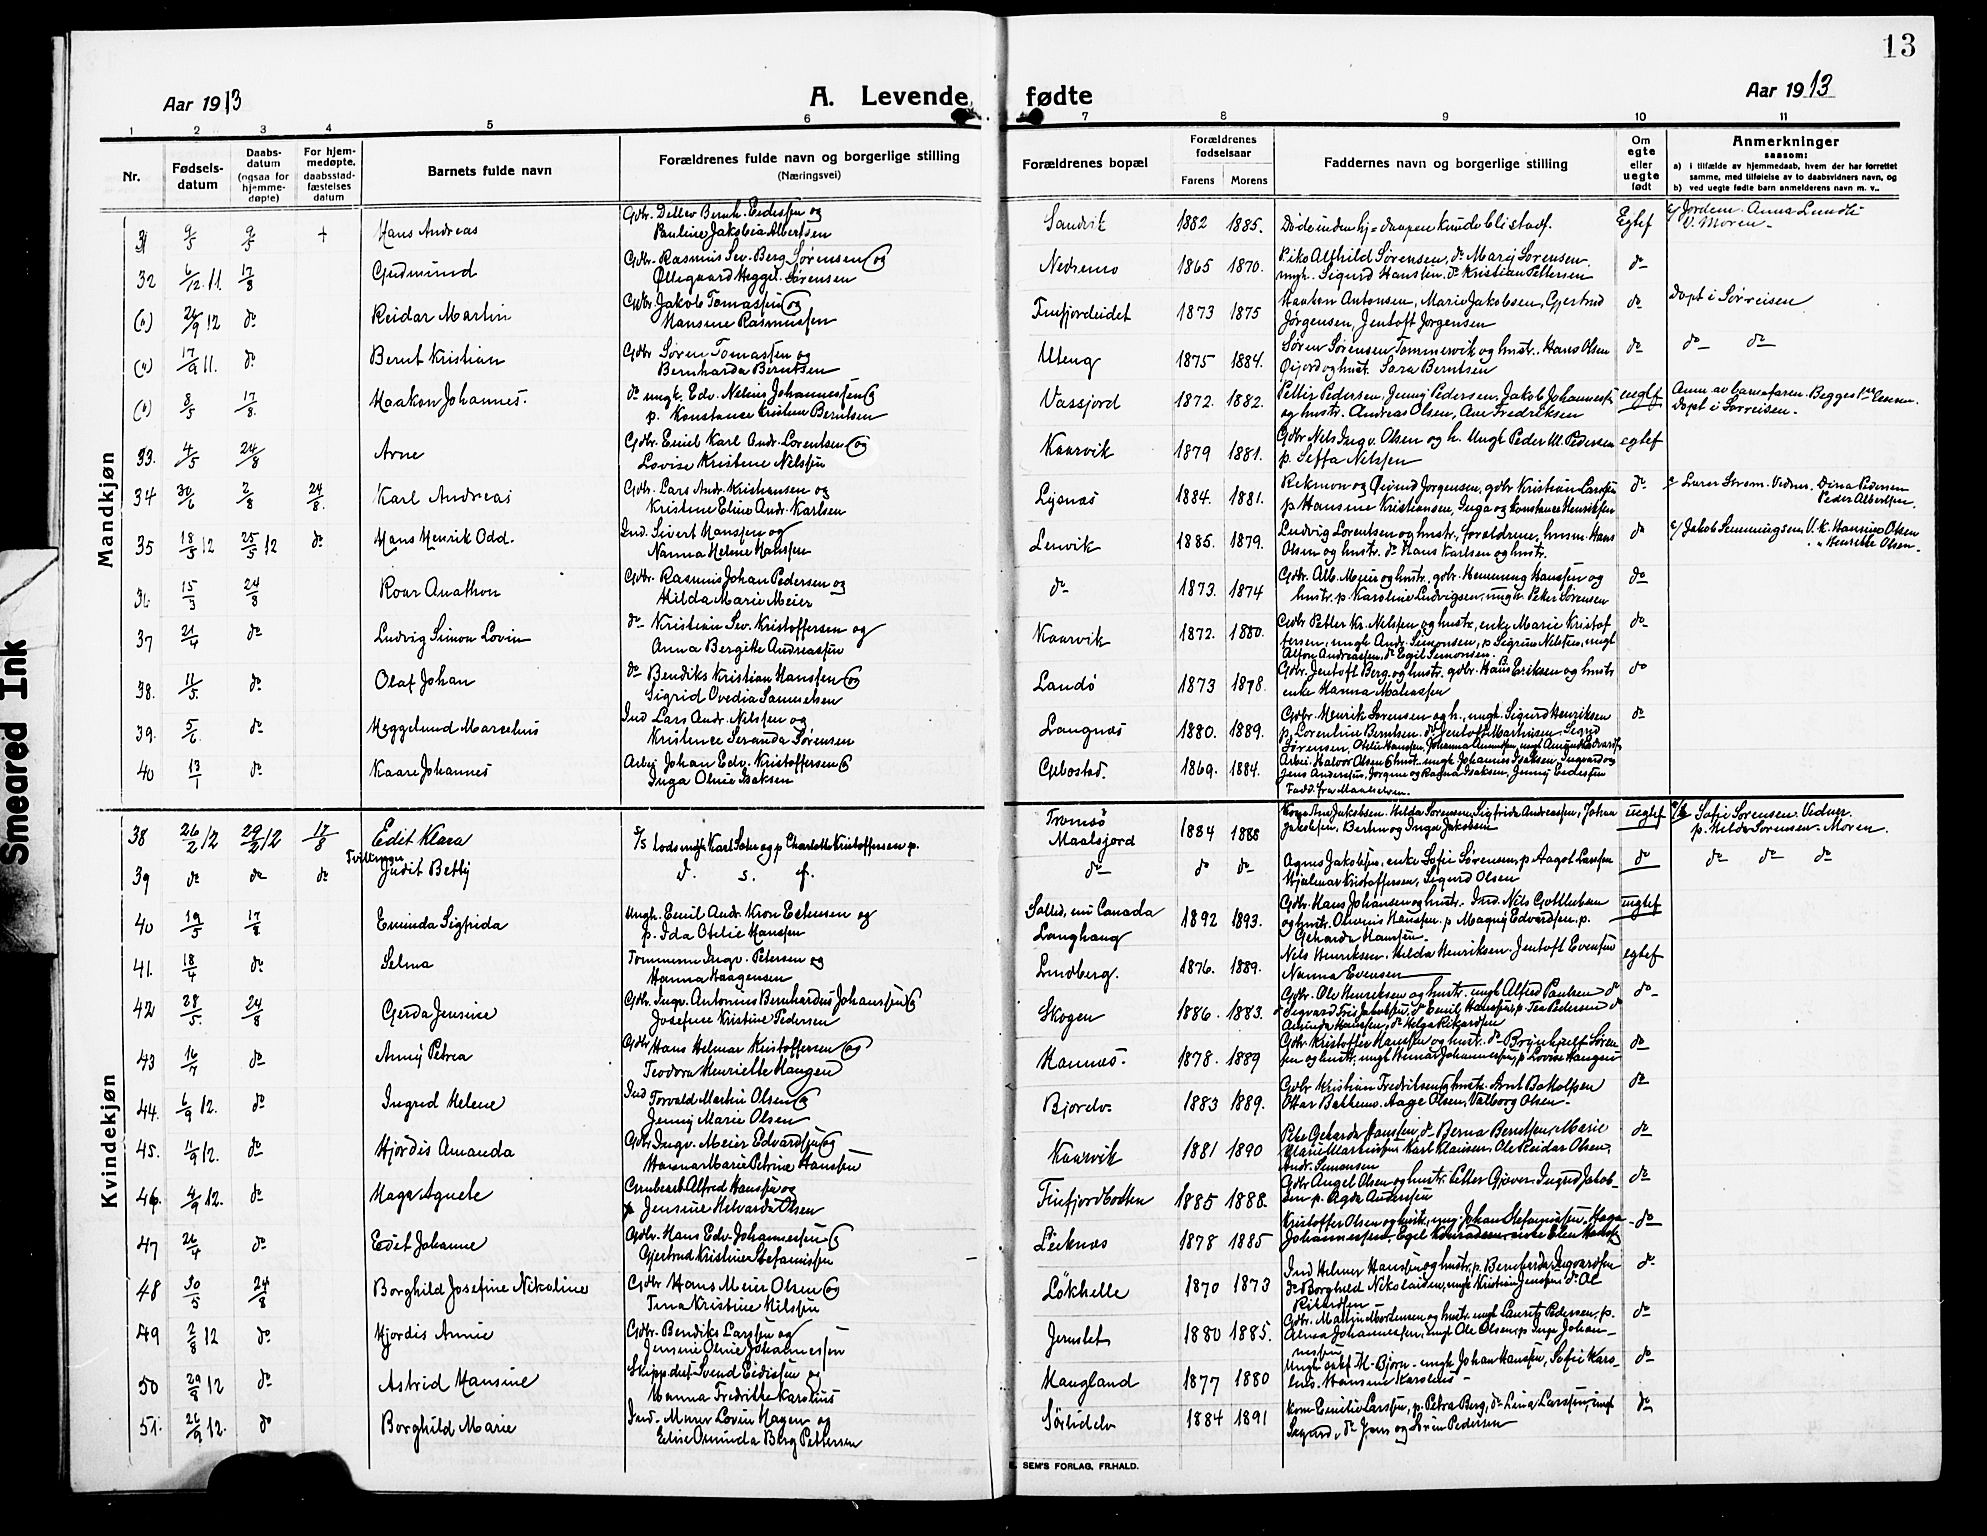 13
Aar 1913
A. Levende
fødte
Aar 1913
1 2 3 4 5 6 7 8 9 10 11
Nr.
Fødsels-
datum
Daabs-
datum
(ogsaa for
hjemme-
døpte)
For hjem-
medøpte,
daabsstad-
fæstelses
datum
Barnets fulde navn
Forældrenes fulde navn og borgerlige stilling
(Næringsvei)
Forældrenes bopæl
Forældrenes
fødselsaar
Farens Morens
Faddernes navn og borgerlige stilling
Om
egte
eller
uegte
født
Anmerkninger
saasom:
a) i tilfælde av hjemmedaab, hvem der har forrettet
samme, med tilføielse av to daabsvidners navn, og
b) ved uegte fødte barn anmelderens navn m. v..
Mandkjøn
31 9/5 9/5 + Hans Andreas
Gbr. Detlev Bernh. Eedessen og
Pauline Jakobia Albertsen
Sandvik 1882 1885. Egtef
Jordem. Anna Lundli
V. Moren.
32 6/12 11. 17/8 Gudmund
Gbr. Rasmus Sev. Berg Sørensen og
Ollegaard Heggel. Sørensen
Nedremo 1865 1870. do
Piko Alfhild Sørensen, do Marij Sørensen
ungk. Sigurd Hanssen, do Kristian Pettersen
(a) 24/9 12 do Reidar Martin
Gbr. Jakob Tomassen og
Hansine Rasmussen
Finfjordeidet 1873 1875 do
Haakon Antonsen, Marie Jakobsen, Gjertrud
Jørgensen, Jentoft Jørgensen
Døpt i Sørreisen
(a) 17/9 11. do Bernt Kristian
Gbr Søren Tomassen og
Bernharda Berntsen
Uteng 1875 1884. do
Søren Sørensen Tømmervik og hustr. Hans Olsen
Øijord og hust. Sara Berntsen
do do
(a) 8/5 17/8. Haakon Johannes.
do ungk. Edv. Nelius Johannessen og
p. Konstance Kristine Berntsen
Vassjord 1872. 1882. uegtf
Petter Pedersen, Jenny Pedersen, Jakob Johannessen
og hustr. Andreas Olsen, Ane Fredriksen
Anm. av barnefaren. Begges 1ste
Døpt i Sørreisen.
33. 4/5 24/8 Arne
Gbr. Emil Karl Andr. Lorentsen og
Lovise Kristine Nilssen
Kaarvik 1879 1881. egtef
Gbr Nils Ingv. Olsen og h. Ungk Peder M. Pedersen
p. Seffa Nilssen
34 30/6 2/8 24/8. Karl Andreas
Gbr. Lars Andr. Kristiansen og
Kristine Eline Andr. Karlsen
Lysnæs 1884. 1881. do
p Hansine Kristiansen, Inga og Konstance Henriksen
Vidner. Dina Pedersen
Peder Albertsen
35 18/5 12 25/5 12 do Hans Henrik Odd.
Ind. Sivert Hanssen og
Nanna Helene Hanssen
Lenvik 1885. 1879. do
Ludvig Lorentsen og hustr., forældrene, husm. Hans
Olsen og hustr. do Hans Karlsen og hustr.
Jakob Hemmingsen V. K. Hansine Olsen
" Henrikke Olsen.
36 15/3 24/8 Roar Anathon
Gbr. Rasmus Johan Pedersen og
Hilda Marie Meier
do 1873. 1874 do
Gbr. Alb. Meier og hustr., gbr. Hemming Hanssen og
hustr. p. Karoline Ludvigsen, ungk. Petter Sørensen
37 21/4 do Ludvig Simon Lovin
do Kristian Sev. Kristoffersen og
Anna Bergitte Andreassen
Kaarvik 1872. 1880. do
Gbr Petter Kr. Nilssen og hustr., enke Marie Kristof
fersen, ungk. Andr. Simonsen, p Sigrun Nilssen, ungk
Alfon Andreassen, do Egil Simonsen.
38. 11/5. do Olaf Johan
do Bendiks Kristian Hanssen og
Sigrid Ovedia Samuelsen
Landø 1873 1878. do
Gbr. Jentoft Berg og hustr. gbr. Hans Eriksen og hustr
enke Hanna Mathiassen
39. 5/6. do Heggelund Marcelius
Ind Lars Andr. Nilssen og
Kristence Seranda Sørensen
Langnæs 1880. 1889. do
Gbr. Henrik Sørensen og h., ungk. Sigurd Henriksen
p. Lorentine Berntsen, do Jentoft Martinsen, Sigrid
40 13/1 do Kaare Johannes
Arbej Johan Edv. Kristoffersen og
Inga Oline Isaksen
Gibostad. 1869. 1884.
Arbei. Halvor Olsen og hust. ungk Johannes Isaksen, Ingvard og
Jens Andersen, Jørgine og Ragna Isaksen, Jenny Eedessen
Fadd. fra Maalselven.
Kvindekjøn
38 26/2 12 29/2 12 17/8 Edit Klara
Lods ungk Karl Sater og p Charlotte Kristoffersen p.
Tromsø
Maalsjord 1884 1888 uegtef
Hilda Sørensen, Sigfrida Andreassen, Johan
Jakobsen, Bertha og Inga Jakobsen
Sofie Sørensen. Vidner.
p. Hilda Sørensen. Moren.
39 do do do Tvillinger
Judit Betty
d. s. f.
do do do do
Agnes Jakobsen, enke Sofie Sørensen, p Aagot Larssen
Hjalmar Kristoffersen, Sigurd Olsen
do do do
40 19/5 17/8 Eminda Sigfrida
Ungk. Emil Andr. Kron Eelmsen og
p. Ida Otelie Hanssen
Solled, nu Canada
Langhaug 1892 1893. uegtef
Gbr. Hans Johansen og hustr. Ind. Nils Gotlieksen
og hustr. Olivenus Hanssen. p Magny Edvardsen, p.
Geharda Hanssen.
41. 18/4 do Selma
Tømmerm Ingv. Petersen og
Hanna Haagensen
Lindberg. 1876. 1889. egtef
Nils Henriksen. Hilda Henriksen. Jentoft Evensen
Nanna Evensen
42 28/5. 24/8 Gerda Jensine
Gbr. Ingv. Antonius Bernhardus Johanssen og
Josefine Kristine Pedersen
Skogen 1886. 1883. do
Gbr. Ole Henriksen og hustr. ungk Alfred Paulsen do
Aminda Hanssen, do Helga Rikardsen
43 16/7 do Anny Petrea
Gbr Hans Helmar Kristoffersen og
Teodora Henriette Haugen
Hannæs. 1878. 1889 do
Gbr Kristoffer Hanssen og hust. do Brynhjulf Søren
sen og hustr, ungk Henar Johannessen, p Lovise Haugen
44. 6/9 12. do Ingrid Helene
Ind Torvald Martin Olsen og
Jenny Marie Olsen
Bjorelv 1883 1889. do
Gbr Kristian Fredriksen og hustr. Arnt Bottolfsen
Ottar Bakkemo. Aage Olsen, Valborg Olsen.
45. 11/9 12. do Hjørdis Amanda
Gbr Ingv. Meier Edvardsen og
Hanna Marie Petrine Hanssen
Kaarvik 1881 1890 do
Pike Geharda Hanssen, do Berna Berntsen, Marie
Karl Klausen, Ole Reidar Olsen,
Andr. Simonsen
46. 4/9 12. do Haga Agnete
Alfred Hanssen og
Jensine Helvarda Olsen
Finfjordbotten 1885 1888. do
Gbr Angel Olsen og hustr. Petter Gjøver. Ingrid Jakob-
sen p. Agda Andersen
47 26/4 do Edit Johanne
Gbr. Hans Edv. Johannessen og
Gjertrud Kristine Stefanussen
Leiknæs 1878 1885 do
Kristoffer Olsen og hustr., ung. Johan Stefanussen. Haga
Johannessen, Egil Konradsen, enke Elen Hanssen
48 30/5 24/8 Borghild Josefine Nikoline
Gbr Hans Meier Olsen og
Tina Kristine Nilssen
Løkhelle 1870 1873 do
Ind Helmer Hanssen og hustr. p. Bernharda Ingvardsen
do Borghild Nikolaisen, ungk Kristian Jenssen do Ol
Rikardsen
49 2/8 12 do Hjørdis Annie
Gbr. Bendiks Larssen og
Jensine Oline Johannessen
Jernslet 1880 1885. do
Gbr. Martin Mortensen og hustr. ungk Lauritz Pedersen, p.
Alma Johannessen, ungk Ole Olsen, p Inga Johan-
nessen
50 29/8 12 do Astrid Hansine
Skipp. Svend Eidissen og
Hanna Fredrikke Karolius
Haugland 1877 1880 do
M. Bjørn. ungk Johan Hanssen, Sofie Karo-
lius. Hansine Karolius
51. 26/9 12. do Borghild Marie
Ind. Murer Lovin Hagen og
Elise Osminda Berg Pettersen
Sørlidelv 1884 1891 do
Kone Emilie Larssen, p. Petra Berg, do Lina Larssen, ungk
Sigurd, do Jens og Søren Pedersen
E. SEM'S FORLAG, FR.HALD.
Smeared Ink